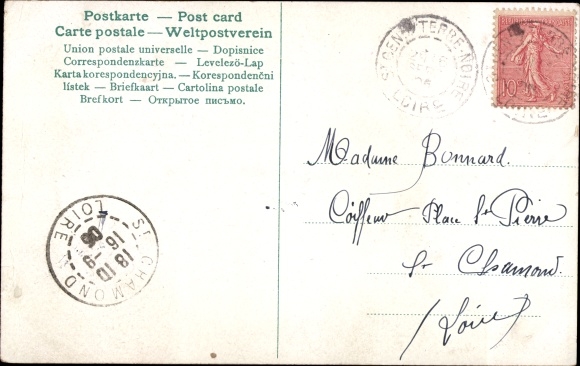 Postkarte — Post card
Carte postale — Weltpostverein
Union postale universelle — Dopisnice
Correspondenzkarte — Levelező-Lap
Karta korespondencyjna. — Korespondenční
lístek — Briefkaart — Cartolina postale
Brefkort — Открытое письмо.
LOIRE
10
Madame Bonnard.
Coiffeur Place St Pierre
St Chamond.
(Loire)
ST CHAMOND
LOIRE
18 10
16 - 9
06